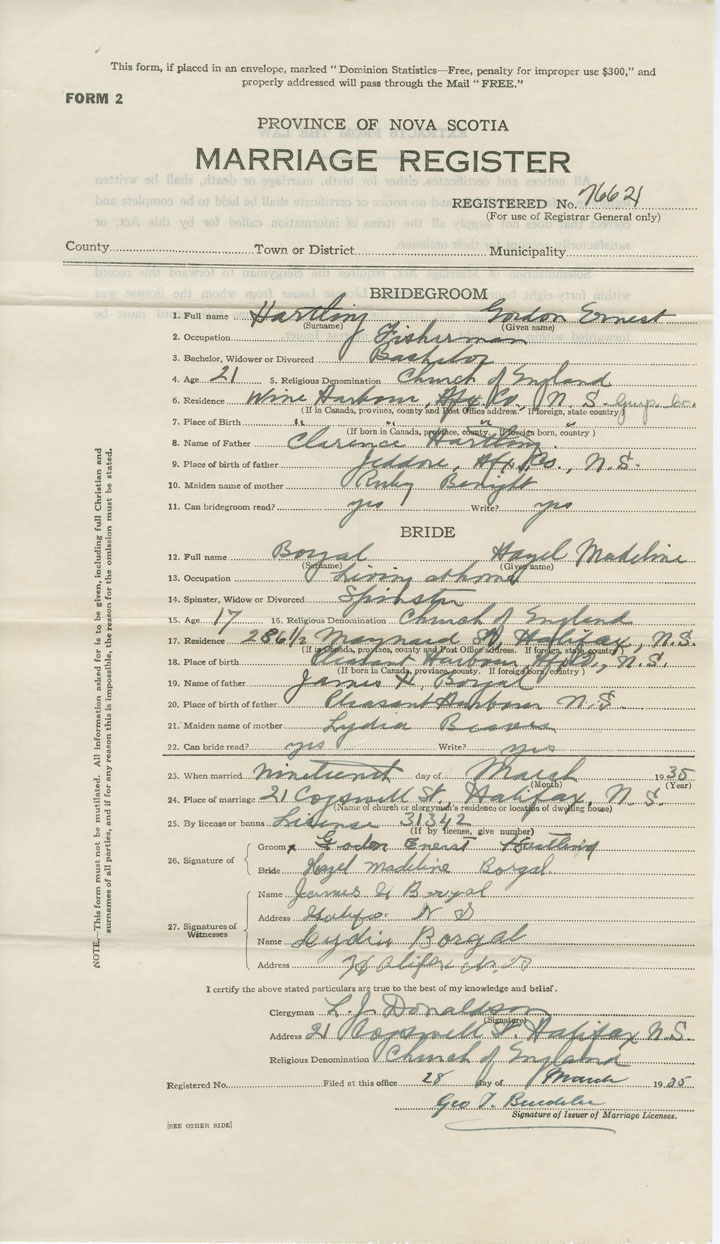 This form, if placed in an envelope, marked "Dominion Statistics—Free, penalty for improper use $300," and
properly addressed will pass through the Mail "FREE."
FORM 2
PROVINCE OF NOVA SCOTIA
MARRIAGE REGISTER
REGISTERED No. 7662
(For use of Registrar General only)
County Town or District Municipality
BRIDEGROOM
1. Full name Hartling Gordon Ernest
(Surname) (Given name)
2. Occupation Fisherman
3. Bachelor, Widower or Divorced Bachelor
4. Age 21 5. Religious Denomination Church of England
6. Residence Wine Harbour, Hfx. Co., N. S. Guys. Co.
(If in Canada, province, county and Post Office address. If foreign, state country)
7. Place of Birth " " " "
(If born in Canada, province, county. If foreign born, country)
8. Name of Father Clarence Hartling
9. Place of birth of father Jeddore, Hfx. Co., N.S.
10. Maiden name of mother Ruby
11. Can bridegroom read? yes Write? yes
BRIDE
12. Full name Borgal Hazel Madeline
(Surname) (Given name)
13. Occupation Living at home
14. Spinster, Widow or Divorced Spinster
15. Age 17 16. Religious Denomination Church of England
17. Residence 286 1/2 Maynard St, Halifax, N.S.
(If in Canada, province, county and Post Office address. If foreign, state country)
18. Place of birth Pleasant Harbour, N.S.
(If born in Canada, province, county. If foreign born, country)
19. Name of father James H. Borgal
20. Place of birth of father Pleasant Harbour N.S.
21. Maiden name of mother Lydia
22. Can bride read? yes Write? yes
23. When married nineteenth day of March 1935
(Month) (Year)
24. Place of marriage 21 Cogswell St., Halifax, N. S.
(Name of church or clergyman's residence or location of dwelling house)
25. By license or banns License 31342
(If by license, give number)
26. Signature of
Groom x Godon Enerst Hartling
Bride Hazel Madeline Borgal.
27. Signatures of Witnesses
Name James H Borgal
Address Halifx. N S
Name Lydia Borgal
Address Halifax N.S
I certify the above stated particulars are true to the best of my knowledge and belief.
Clergyman L. J. Donaldson
(Signature)
Address 21 Cogswell St. Halifax N.S.
Religious Denomination Church of England
Registered No. Filed at this office 28 day of March 1935
Geo T.
Signature of Issuer of Marriage Licenses.
[SEE OTHER SIDE]
NOTE.—This form must not be mutilated. All information asked for is to be given, including full Christian and
surnames of all parties, and if for any reason this is impossible, the reason for the omission must be stated.